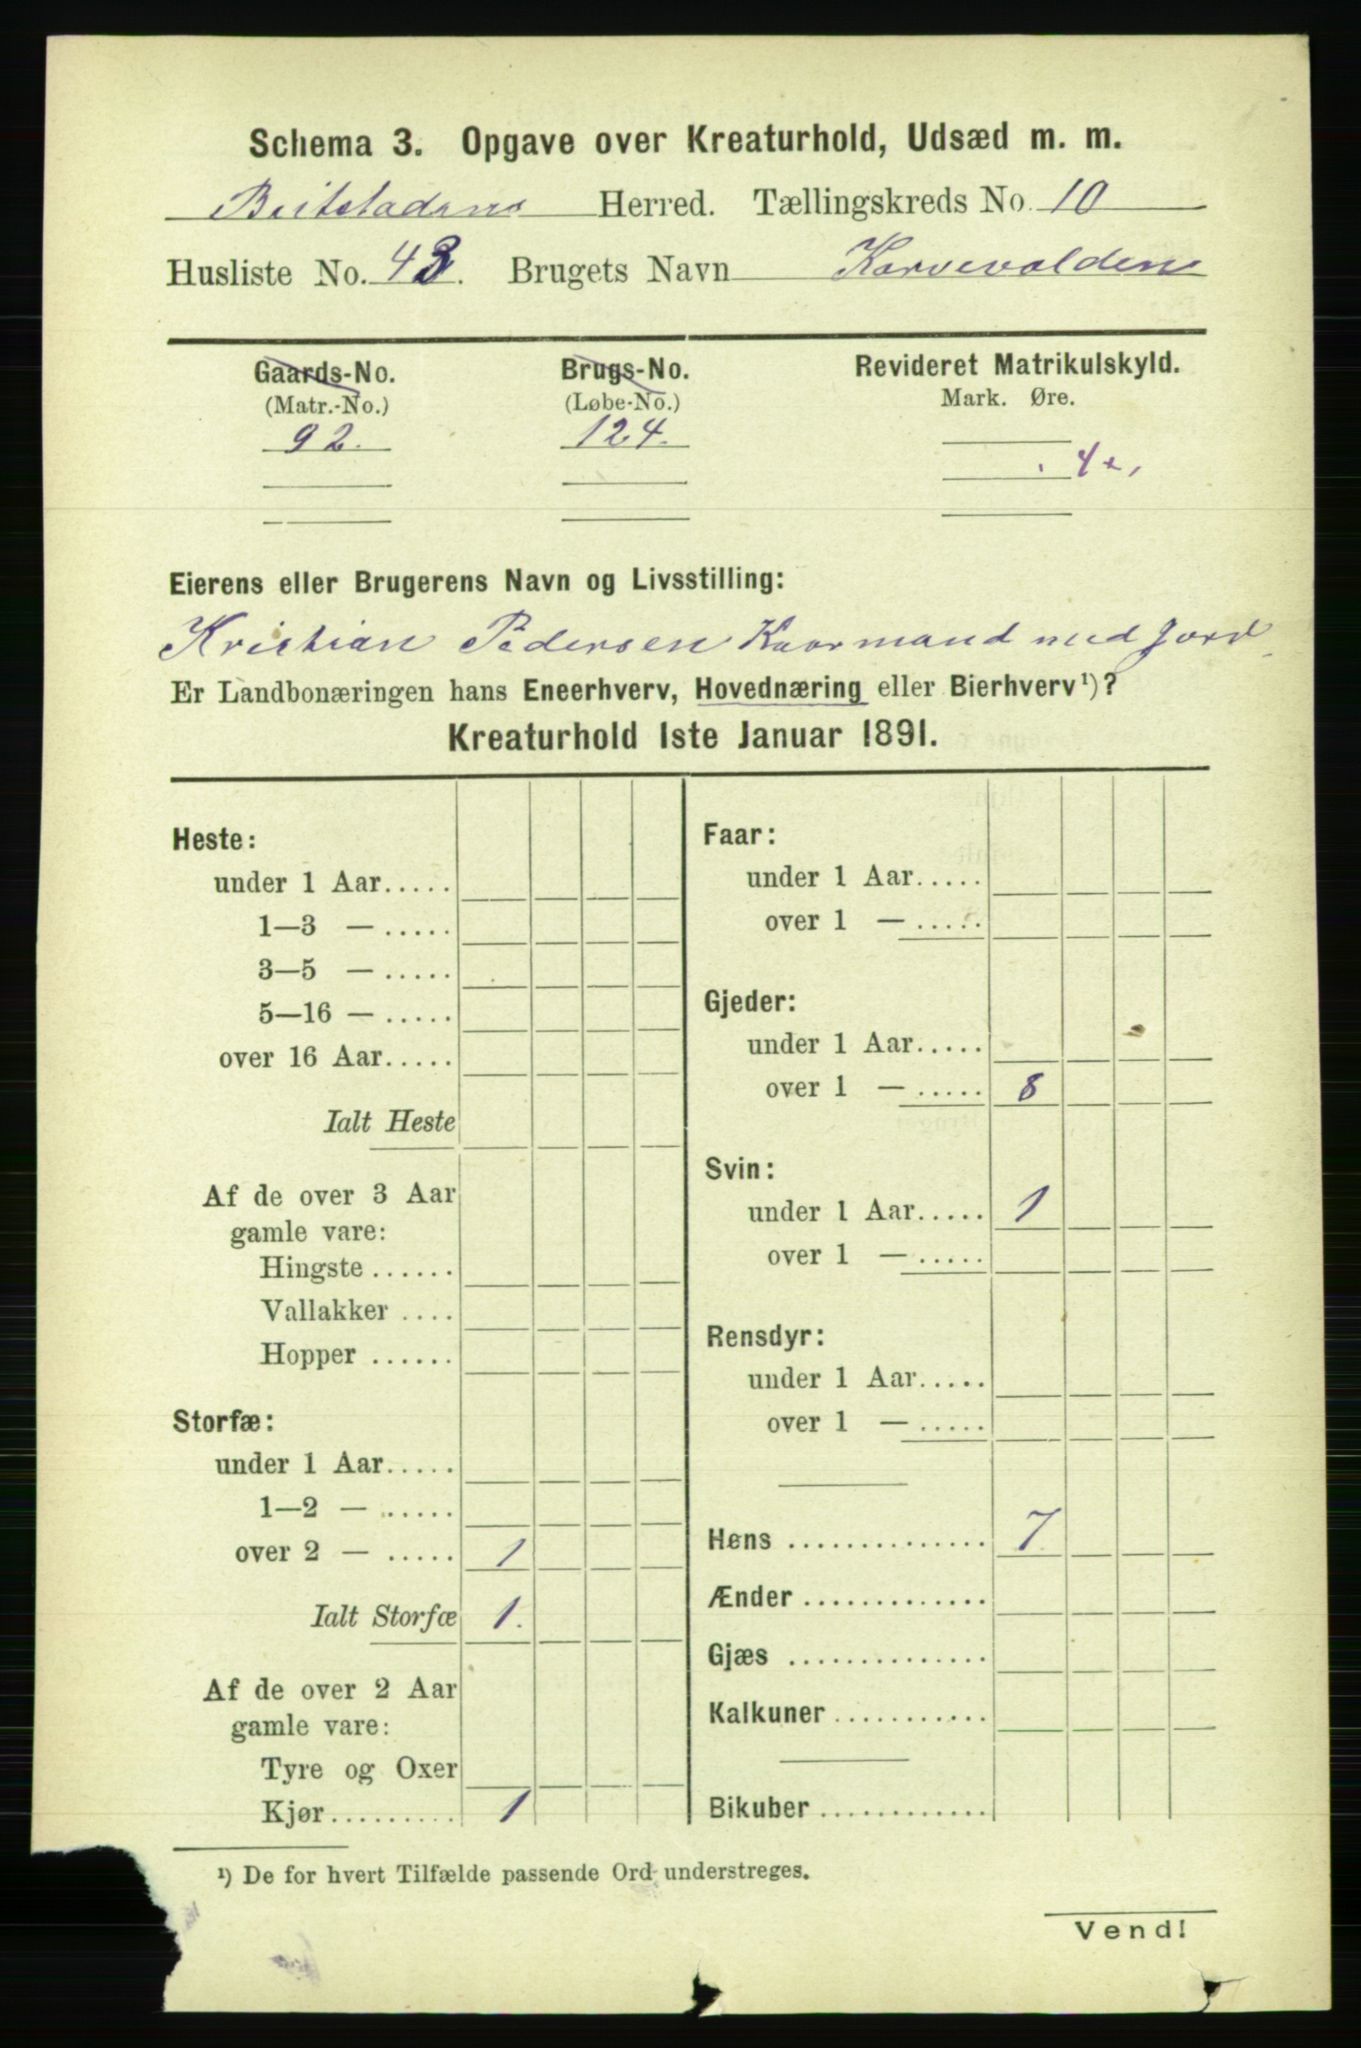 Schema 3. Opgave over Kreaturhold, Udsæd m. m.
Beitstadens Herred. Tællingskreds No. 10
Husliste No. 43. Brugets Navn Korvevolden
Gaards-No. Brugs-No. Revideret Matrikulskyld.
(Matr.-No.) (Løbe-No.) Mark. Øre.
92. 124.
4
Eierens eller Brugerens Navn og Livsstilling:
Kristian Pedersen Huusmand med Jord
Er Landbonæringen hans Eneerhverv, Hovednæring eller Bierhverv¹)?
Kreaturhold 1ste Januar 1891.
Heste:
under 1 Aar.....
1—3 — .....
3—5 — .....
5—16 — .....
over 16 Aar.....
Ialt Heste
Af de over 3 Aar
gamle vare:
Hingste ......
Vallakker ....
Hopper ......
Storfæ:
under 1 Aar.....
1—2 — .....
over 2 — ..... 1
Ialt Storfæ 1.
Af de over 2 Aar
gamle vare:
Tyre og Oxer
Kjør......... 1
Faar:
under 1 Aar.....
over 1 — .....
Gjeder:
under 1 Aar.....
over 1 — ..... 8
Svin:
under 1 Aar..... 1
over 1 — .....
Rensdyr:
under 1 Aar.....
over 1 — .....
Høns .............. 7
Ænder .............
Gjæs ..............
Kalkuner ...........
Bikuber ............
¹) De for hvert Tilfælde passende Ord understreges.
Vend!